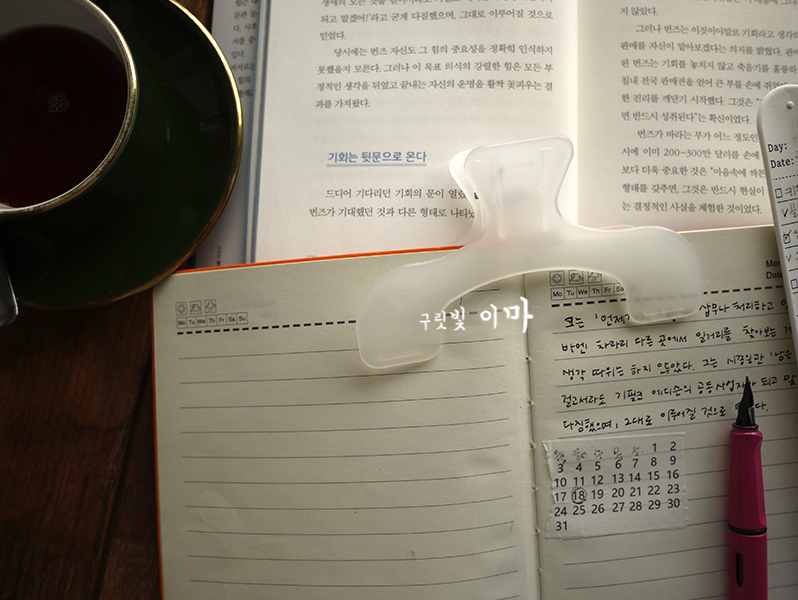 되고 말겠어!'라고 굳게 다짐했으며, 그대로 이루어질 것으로
믿었다.
당시에는 번즈 자신도 그 힘의 중요성을 정확히 인식하지
못했을지 모른다. 그러나 이 목표 의식의 강렬한 힘은 모든 부
정적인 생각을 뒤엎고 끝내는 자신의 운명을 활짝 꽃피우는 결
과를 가져왔다.
기회는 뒷문으로 온다
드디어 기다리던 기회의 문이 열렸
번즈가 기대했던 것과 다른 형태로 나타났
지 않았다.
그러나 번즈는 이것이야말로 기회라고 생각하
판매를 자신이 맡아보겠다는 의지를 밝혔다. 판
된 번즈는 기회를 놓치지 않고 축음기를 훌륭하
침내 전국 판매권을 얻어 큰 부를 손에 쥐었다
한 진리를 깨닫기 시작했다. 그것은 "
면 반드시 성취된다"는 확신이었다.
번즈가 바라는 부가 어느 정도인
시에 이미 200~300만 달러를 손에
보다 더욱 중요한 것은 "마음속에 싹튼
형태를 갖추면, 그것은 반드시 현실이
는 결정적인 사실을 체험한 것이었다.
Day:
Date:
구릿빛 이마
Mo Tu We Th Fr Sa Su
Mo Tu We Th Fr Sa
또는 '언제 삽무나 처리하고
바엔 차라리 다른 곳에서 일거리를 찾아보는 게
생각 따위는 하지 않았다. 그는 시종일관 '남은
걸고서라도 기필코 에디슨의 공동사업자가 되고 말
다짐했으며, 그대로 이루어질 것으로 다.
1 2
3 4 5 6 7 8 9
10 11 12 13 14 15 16
17 18 19 20 21 22 23
24 25 26 27 28 29 30
31